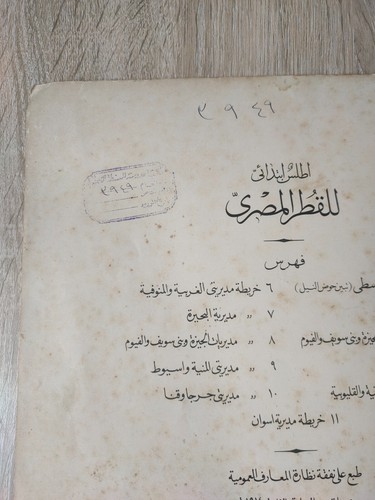 ٣ ٩ ٤٩
اطلس ابتدائى
للقطر المصرىّ
فهرس
(تبين حوض النيل) ٦ خريطة مديريتى الغربية والمنوفية
٧ " مديرية البحيرة
يزة وبنى سويف والفيوم ٨ " مديريات الجيزة وبنى سويف والفيوم
٩ " مديرتى المنية واسيوط
ية والقليوبية ١٠ " مديرتى جرجا وقنا
١١ خريطة مديرية اسوان
طبع على نفقة نظارة المعارف العمومية